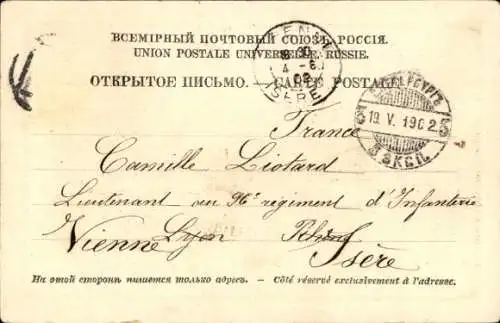 ВСЕМІРНЫЙ ПОЧТОВЫЙ СОЮЗЪ. РОССІЯ.
UNION POSTALE UNIVERSELLE. RUSSIE.
ОТКРЫТОЕ ПИСЬМО. — CARTE POSTALE.
ISÈRE
19. V. 1902
5
5
France
Camille Liotard
Lieutenant au 96e régiment d'Infanterie
Vienne Lyon Rhône
Isère
На этой сторонѣ пишется только адресъ. — Côté réservé exclusivement à l'adresse.